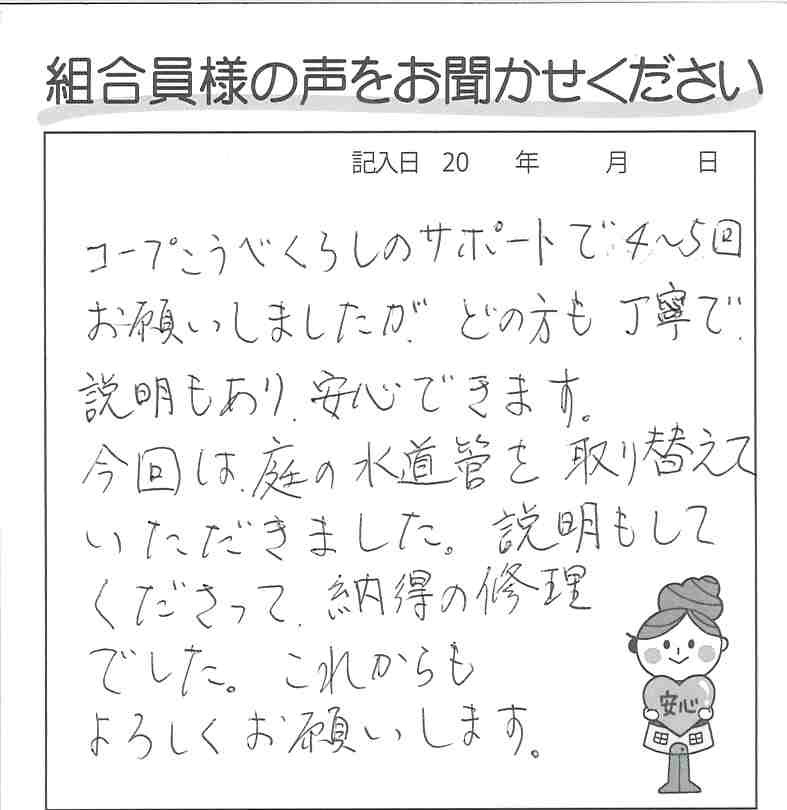 組合員様の声をお聞かせください
記入日 20 年 月 日
コープこうべくらしのサポートで 4〜5回
お願いしましたが、どの方も 丁寧で、
説明もあり、安心できます。
今回は、庭の水道管を 取り替えて
いただきました。説明もして
くださって、納得の修理
でした。これからも
よろしくお願いします。
安心